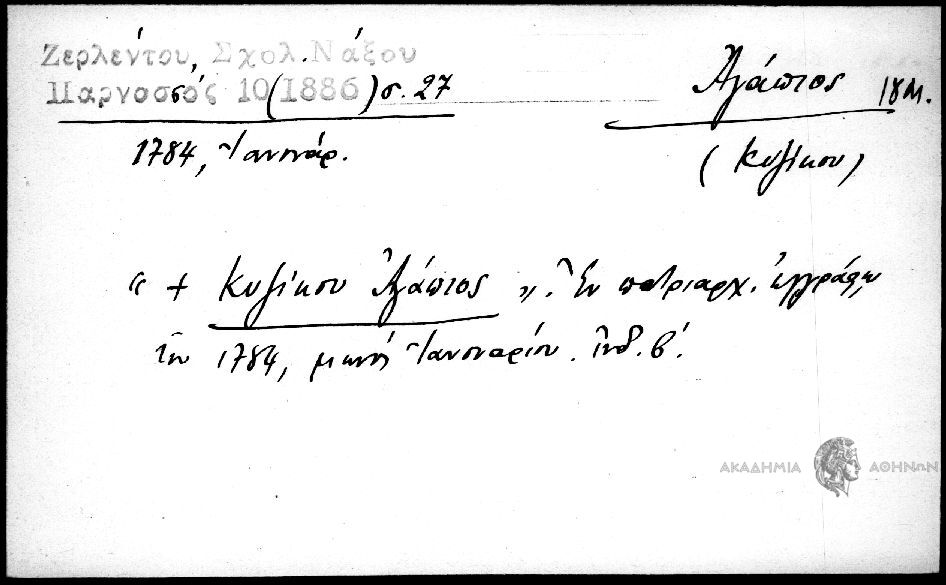 Ζερλέντου, Σχολ. Νάξου
Παρνασσός 10 (1886) σ. 27
Ἀγάπιος
1784, Ἰανουάρ.
(Κυζίκου)
" + Κυζίκου Ἀγάπιος ". Ἐν πατριαρχ. ἐγγράφῳ
τοῦ 1784, μηνὸς Ἰανουαρίου. ἰνδ. β΄.
ΑΚΑΔΗΜΙΑ ΑΘΗΝΩΝ